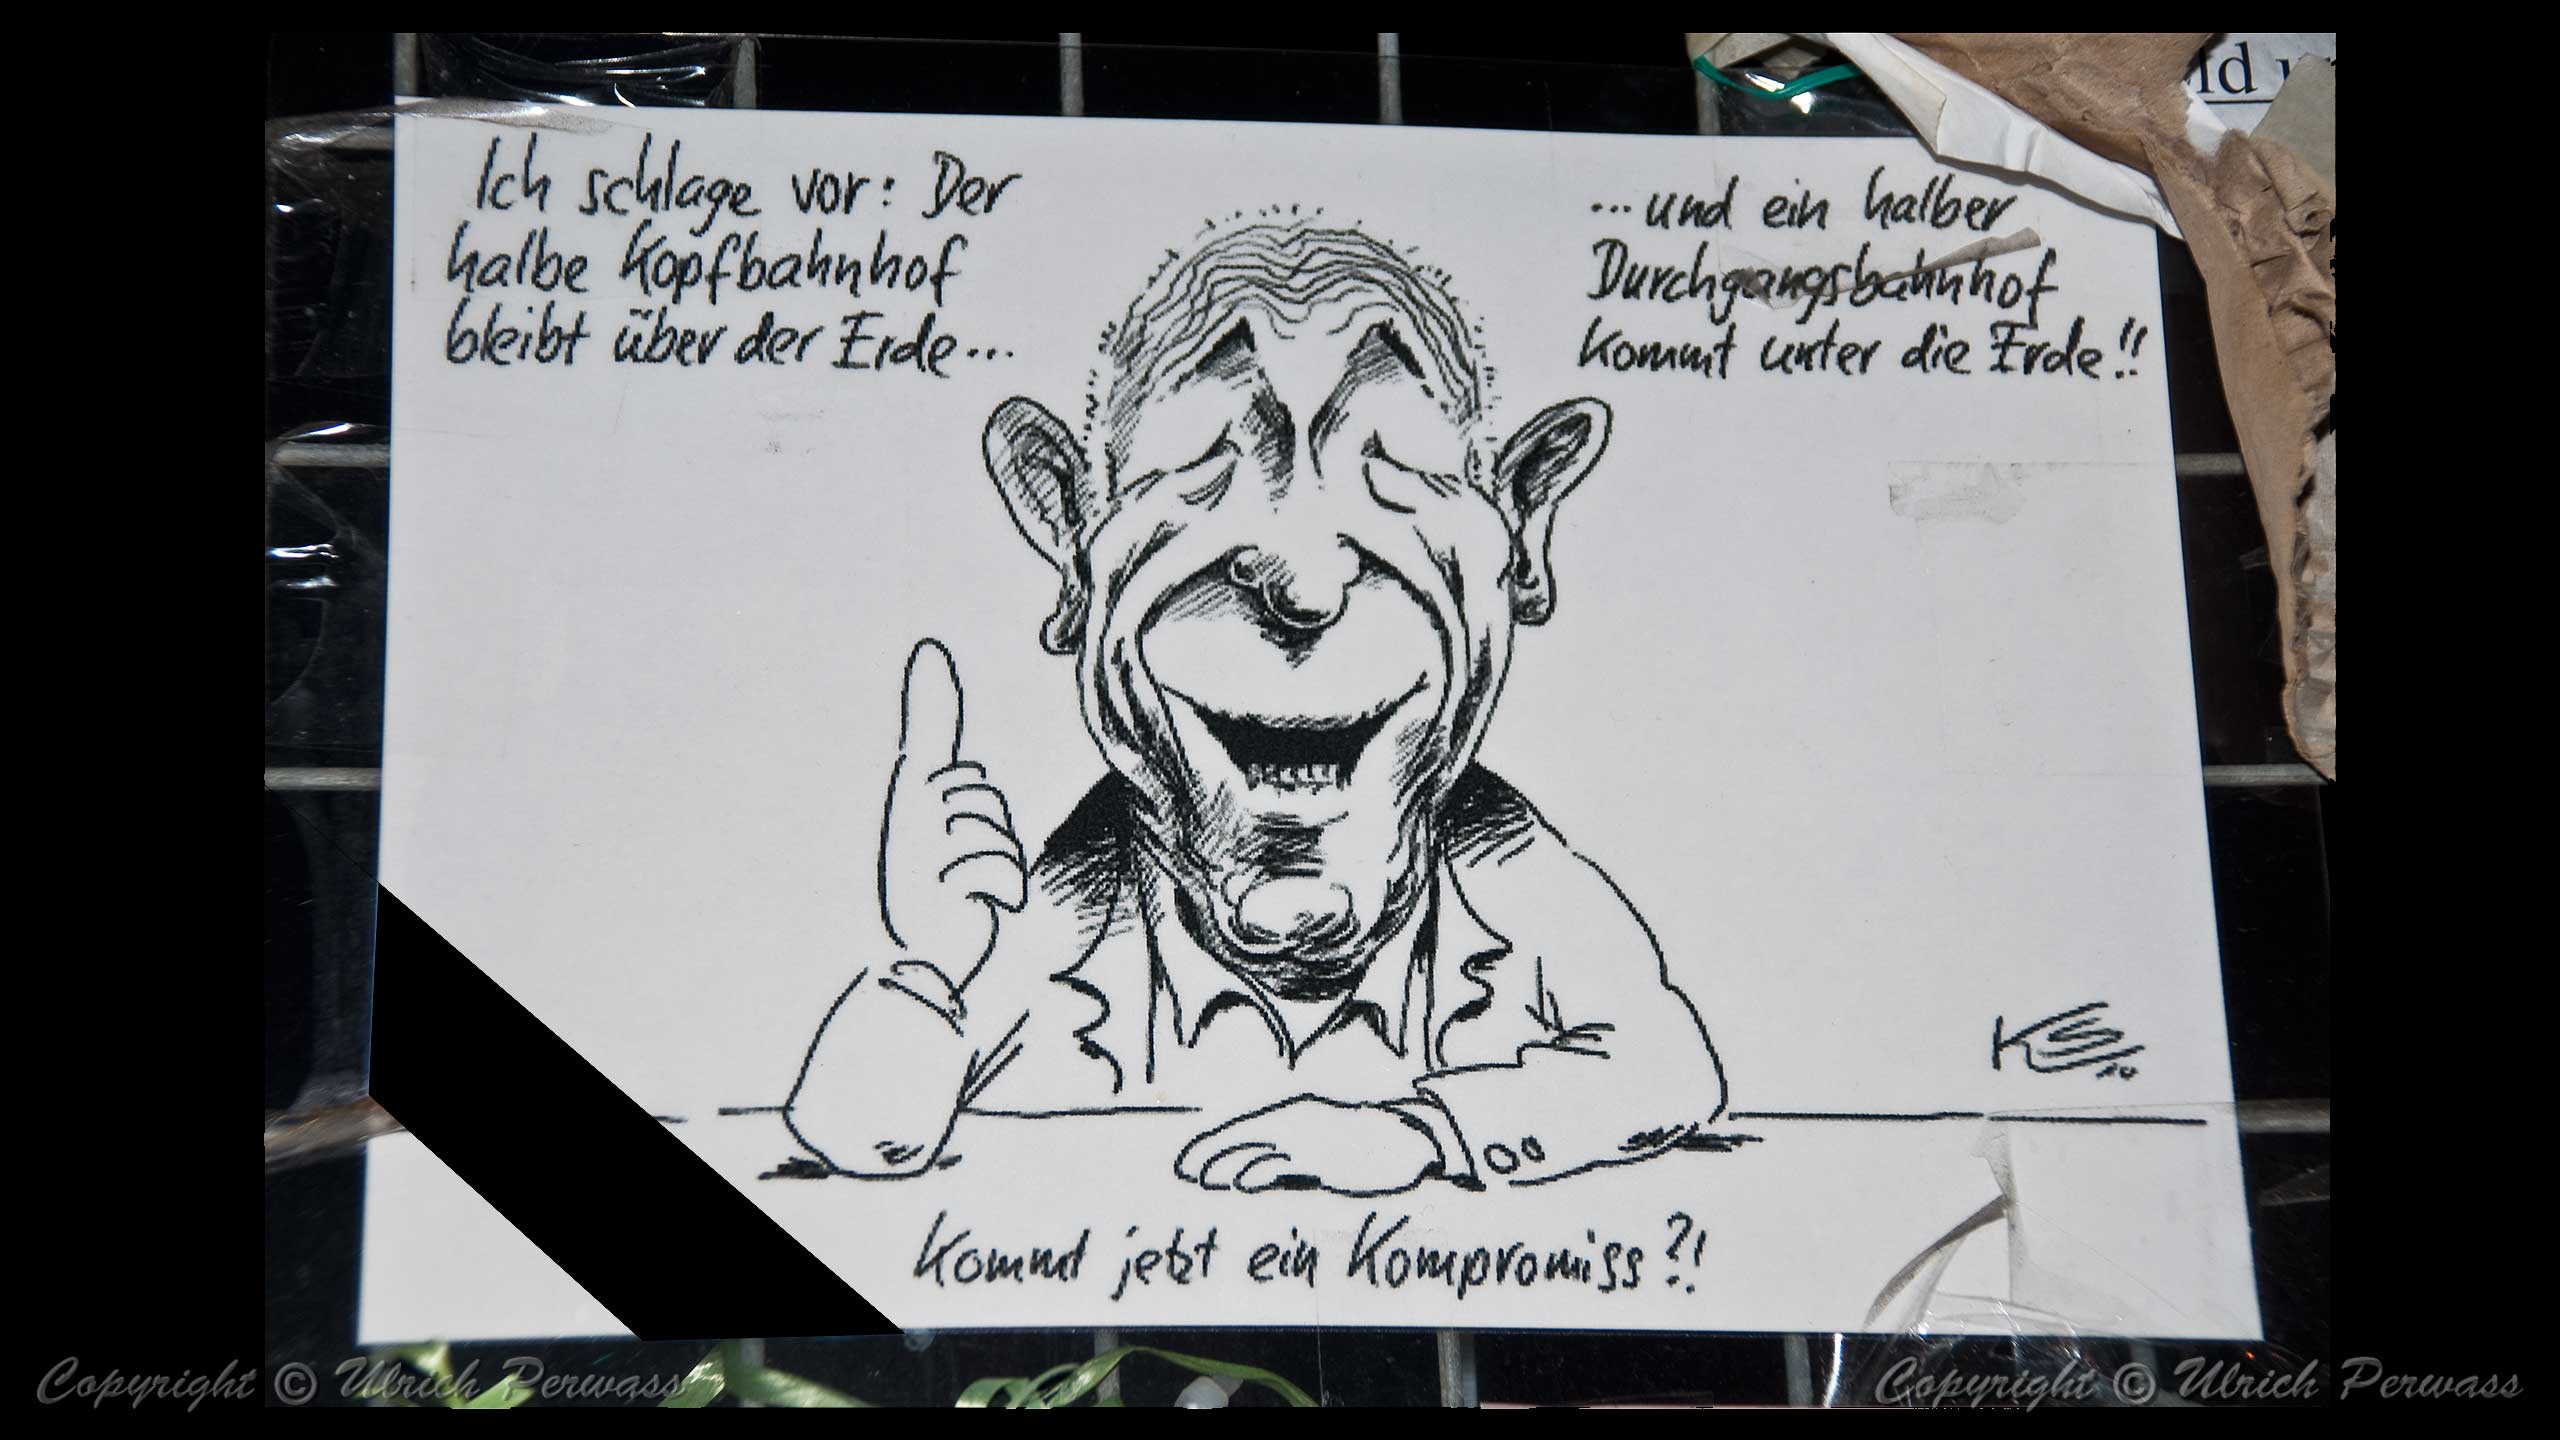 ld u
Ich schlage vor: Der
halbe Kopfbahnhof
bleibt über der Erde...
...und ein halber
Durchgangsbahnhof
kommt unter die Erde!!
Kommt jetzt ein Kompromiss?!
Copyright © Ulrich Perwass
Copyright © Ulrich Perwass